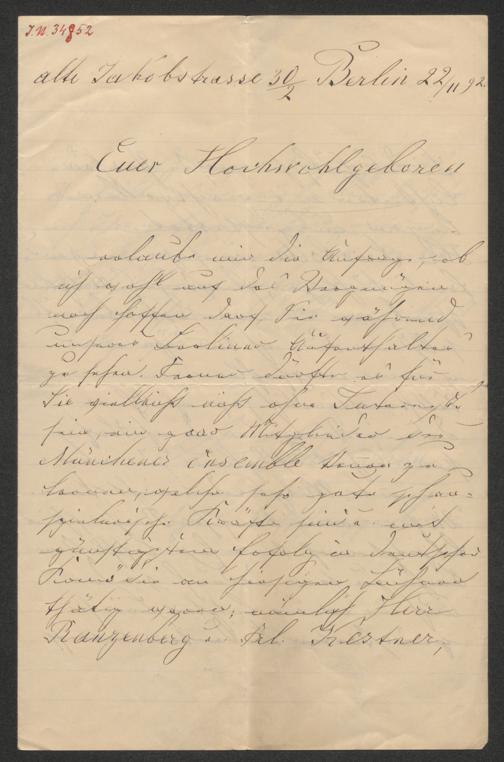 J.N. 34852
alte Jakobstrasse 30/2 Berlin 22/11 92
Euer Hochwohlgeboren
erlaube mir die Anfrage, ob
ich wohl auf das Vergnügen
noch hoffen darf Sie während
unseres Berliner Aufenthaltes
zu sehen. Ferner dürfte es für
Sie vielleicht nicht ohne Interesse
sein, ein paar Mitglieder des
Münchener Ensemble kennen zu
lernen, welche sehr gute schau-
spielerische Kräfte sind u. mit
günstigstem Erfolg in deutscher
Komödie an hiesigen Bühnen
thätig waren, nämlich Herr
Ranzenberg u. Frl. Kestner,